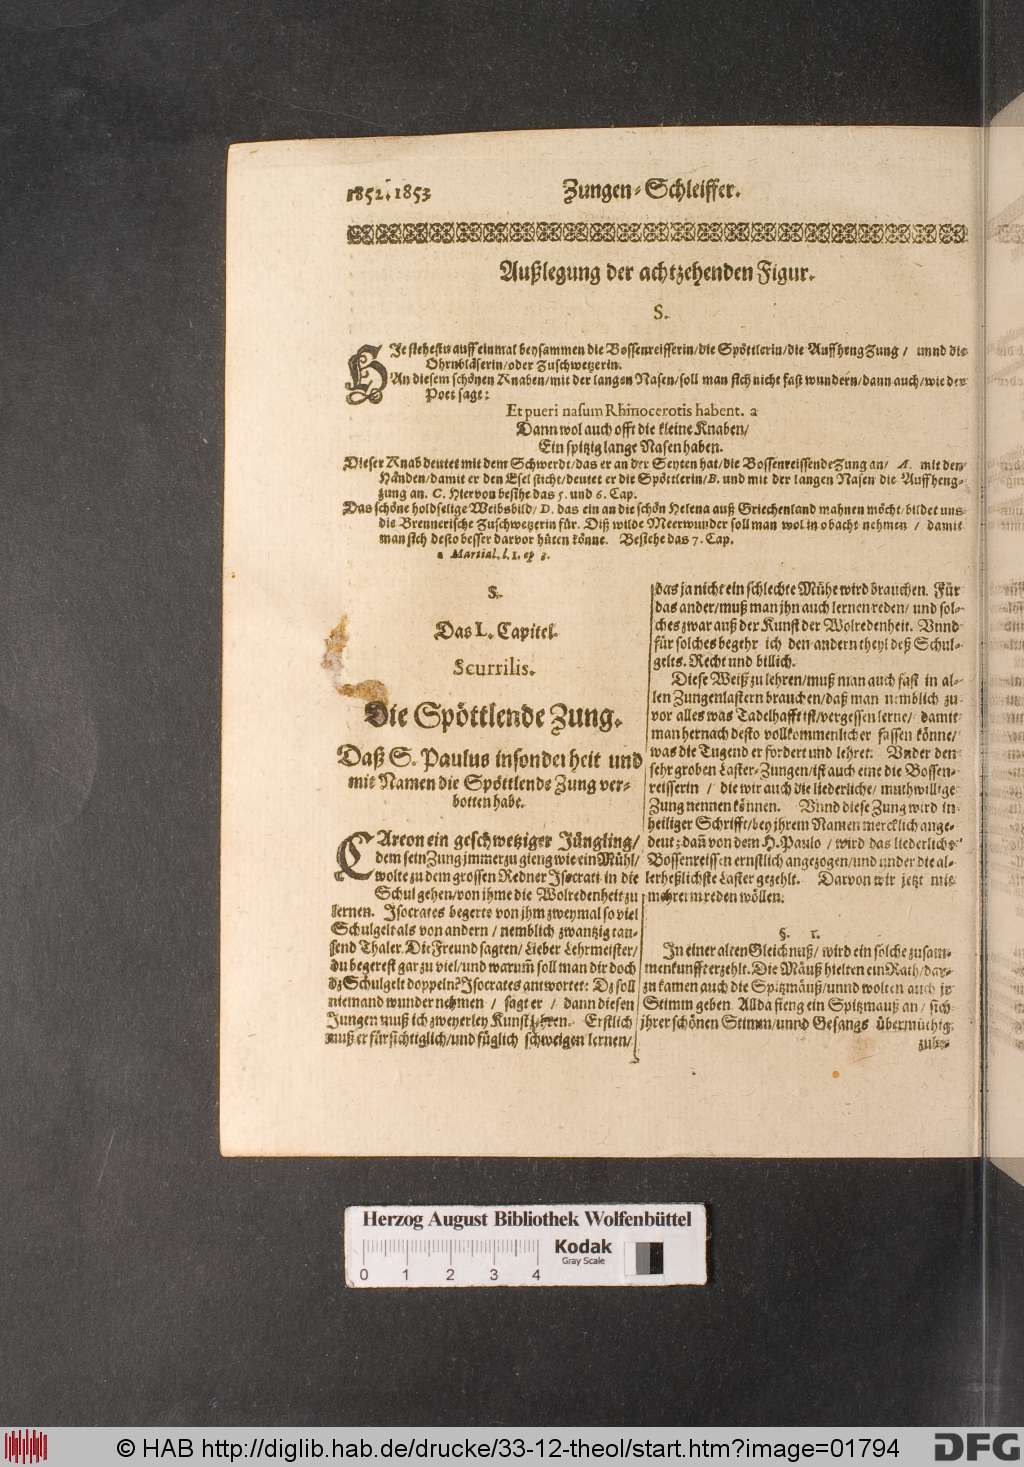 1852. 1853
Zungen-Schleiffer.
Außlegung der achtzehenden Figur.
S.
HIe stehestu auff einmal beysammen die Bossenreisserin/die Spöttlerin/die Auffheng Zung / unnd die
Ohrnbläserin/oder Zuschwetzerin.
An diesem schönen Knaben/mit der langen Nasen/soll man sich nicht fast wundern/dann auch/wie der
Poet sagt:
Et pueri nasum Rhinocerotis habent. a
Dann wol auch offt die kleine Knaben/
Ein spitzig lange Nasen haben.
Dieser Knab deutet mit dem Schwerdt/das er an der Seyten hat/die Bossenreissende Zung an/ A. mit den
Händen/damit er den Esel sticht/deutet er die Spöttlerin/B. und mit der langen Nasen die Auffheng-
zung an. C. Hiervon besihe das 5. und 6. Cap.
Das schöne holdselige Weibsbild/D. das ein an die schön Helena auß Griechenland mahnen möcht/bildet uns
die Brennerische Zuschwetzerin für. Diß wilde Meerwunder soll man wol in obacht nehmen / damit
man sich desto besser darvor hüten könne. Besiehe das 7. Cap.
a Martial. l. 1. ep 3.
S.
Das I. Capitel.
Scurrilis.
Die Spöttlende Zung.
Daß S. Paulus insonderheit und
mit Namen die Spöttlende Zung ver-
botten habe.
CAreon ein geschwetziger Jüngling/
dem sein Zung jmmerzu gieng wie ein Mühl/
wolte zu dem grossen Redner Isocrati in die
Schul gehen/von ihme die Wolredenheit zu
lernen. Isocrates begerte von jhm zweymal so viel
Schulgelt als von andern / nemblich zwantzig tau-
send Thaler. Die Freund sagten/ Lieber Lehrmeister/
du begerest gar zu viel/und warum̃ soll man dir doch
dz Schulgelt doppeln? Isocrates antwortet: Dz soll
niemand wunder nehmen / sagt er / dann diesen
Jungen muß ich zweyerley Kunst lehren. Erstlich
muß er fürsichtiglich/und füglich schweigen lernen/
das ja nicht ein schlechte Mühe wird brauchen. Für
das ander/muß man jhn auch lernen reden/ und sol-
ches zwar auß der Kunst der Wolredenheit. Vnnd
für solches begehr ich den andern theyl deß Schul-
gelts. Recht und billich.
Diese Weiß zu lehren/muß man auch fast in al-
len Zungenlastern brauchen/daß man nemblich zu-
vor alles was Tadelhafft ist/vergessen lerne/ damit
man hernach desto vollkommenlicher fassen könne/
was die Tugend erfordert und lehret. Vnder den
sehr groben Laster-Zungen/ist auch eine die Bossen-
reisserin / die wir auch die liederliche/ muthwillige
Zung nennen können. Vnnd diese Zung wird in
heiliger Schrifft/bey jhrem Namen mercklich ange-
deut: dañ von dem H. Paulo / wird das liederliche
Bossenreissen ernstlich angezogen/und under die al-
lerheßlichste Laster gezehlt. Darvon wir jetzt mit
mehrerm reden wöllen.
§. 1.
In einer alten Gleichnuß/ wird ein solche zusam-
menkunfft erzehlt. Die Mäuß hielten ein Rath/dar-
zu kamen auch die Spitzmäuß/unnd wolten auch jr
Stimm geben. Allda fieng ein Spitzmauß an / sich
jhrer schönen Stimm/unnd Gesangs übermüthig
zube-
Herzog August Bibliothek Wolfenbüttel
0 1 2 3 4
Kodak
Gray Scale
© HAB http://diglib.hab.de/drucke/33-12-theol/start.htm?image=01794
DFG